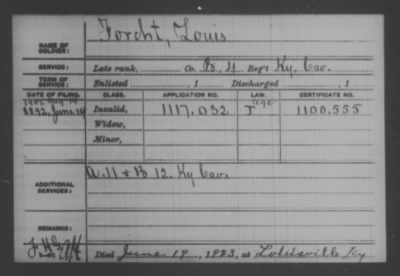 Forcht, Louis
NAME OF SOLDIER:
SERVICE: Late rank, Co. B, 4 Reg't Ky. Cav.
TERM OF SERVICE: Enlisted , 1 Discharged , 1
DATE OF FILING. CLASS. APPLICATION NO. LAW. CERTIFICATE NO.
1892, June Invalid, 1117.032 J age 1100.555
Widow,
Minor,
ADDITIONAL SERVICES: A. 11 & B 12. Ky Cav.
REMARKS:
Died June 19, 1923, at Louisville Ky